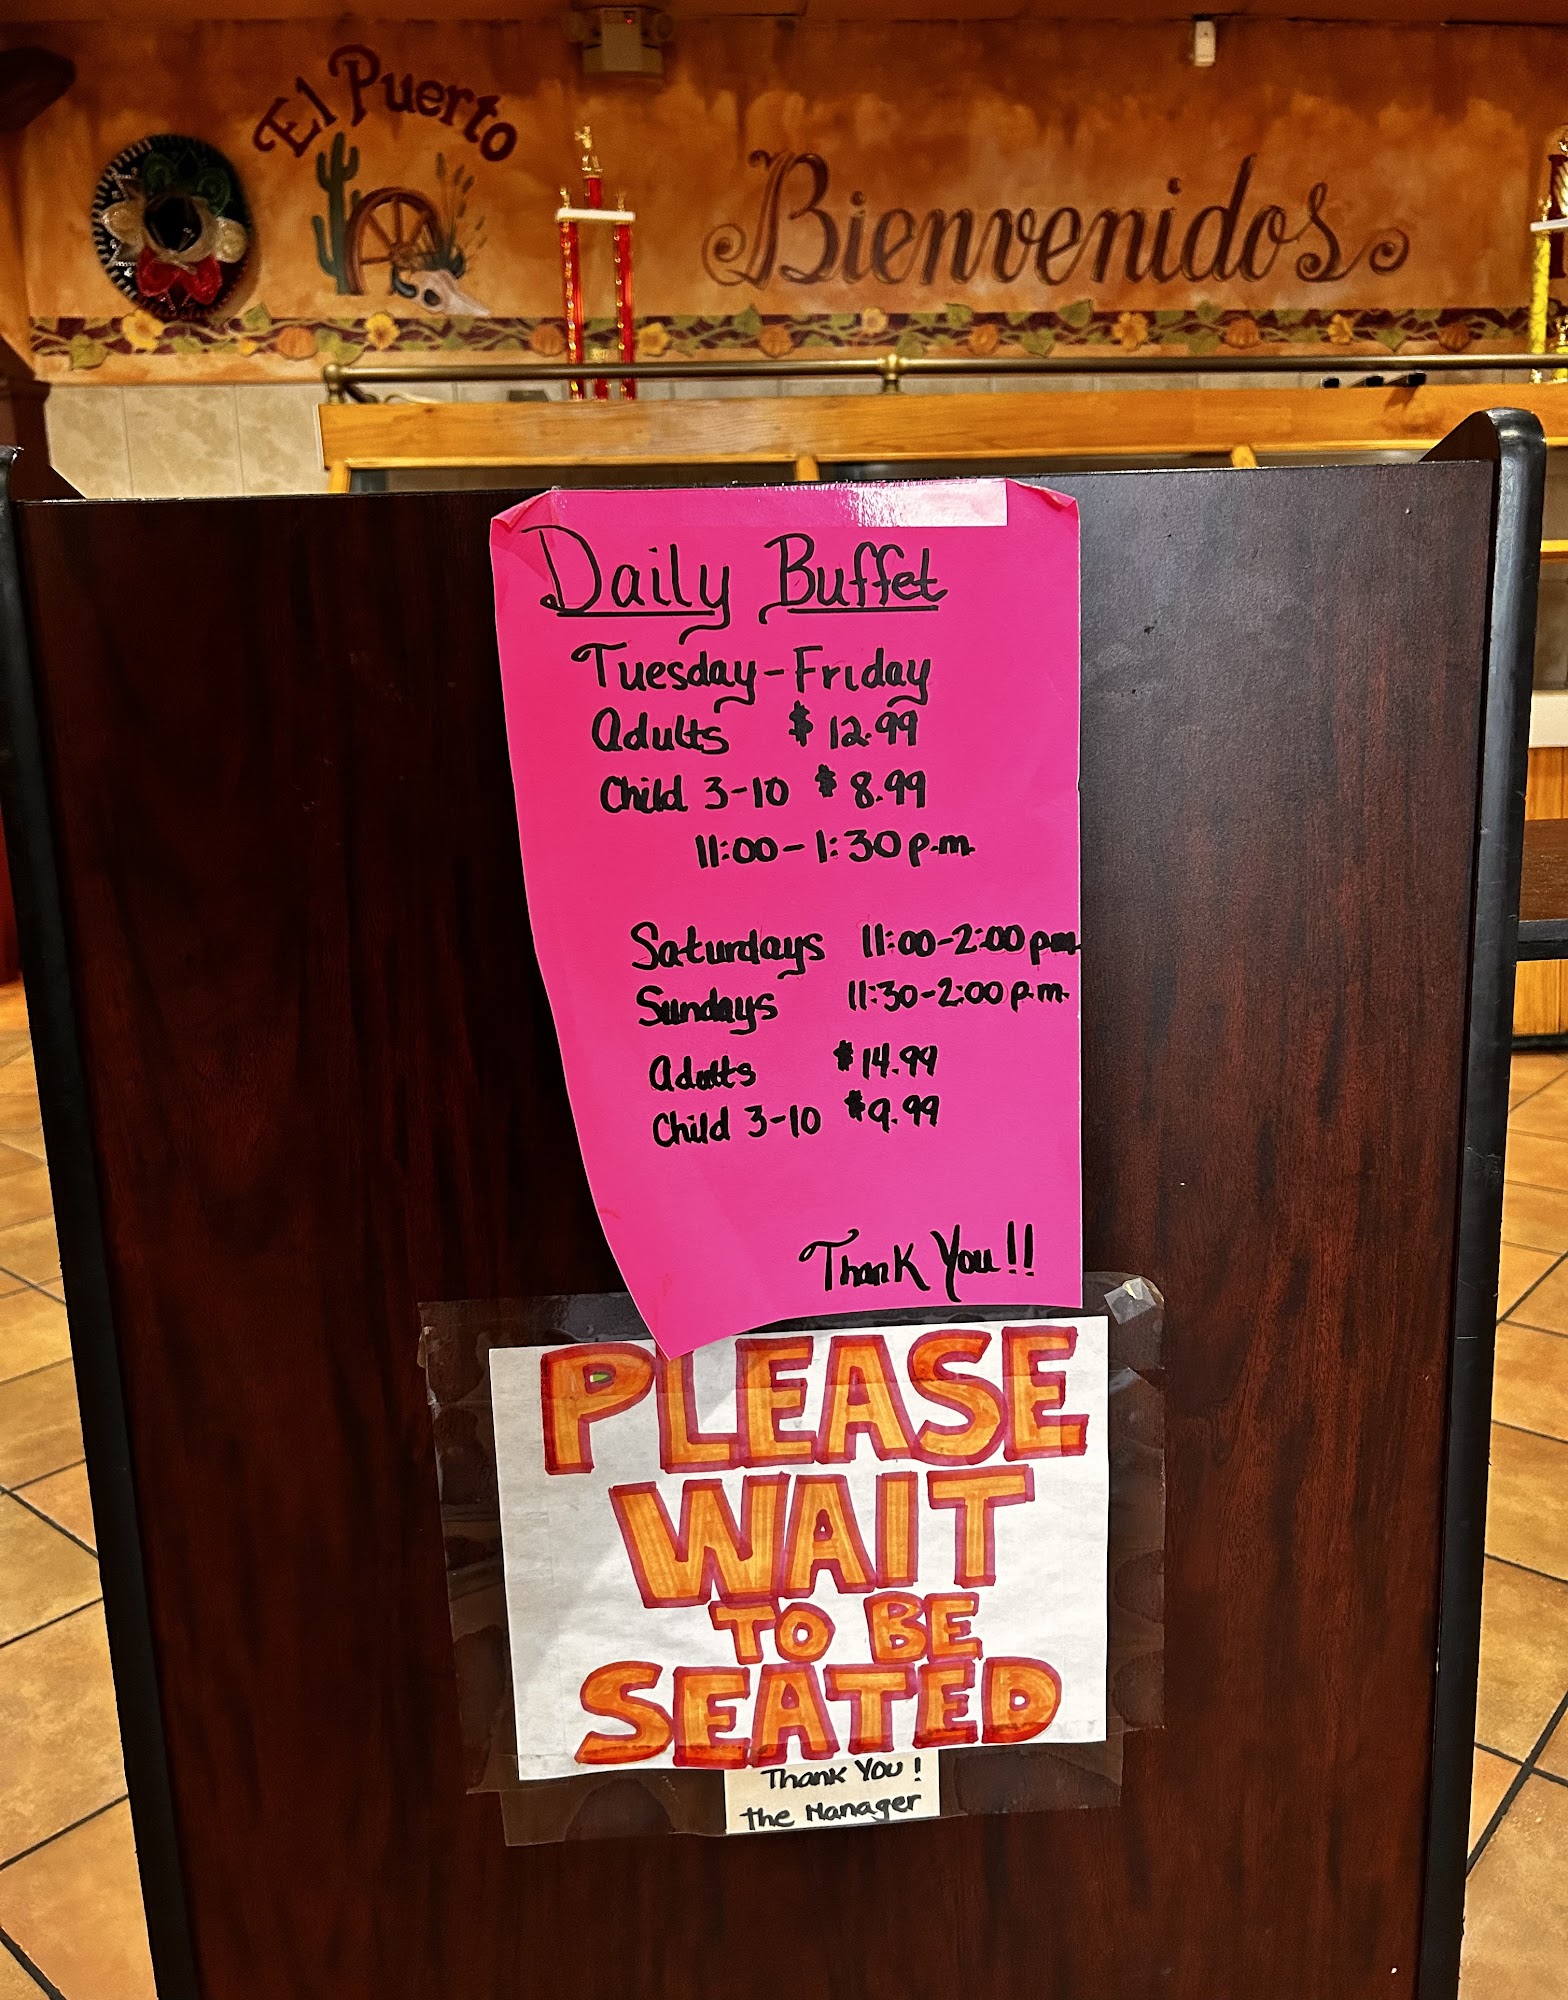 El Puerto
Bienvenidos
Daily Buffet
Tuesday-Friday
Adults $12.99
Child 3-10 $8.99
11:00-1:30 p.m.
Saturdays 11:00-2:00 p.m.
Sundays 11:30-2:00 p.m.
Adults $14.99
Child 3-10 $9.99
Thank You!!
PLEASE
WAIT
TO BE
SEATED
Thank You!
The Manager